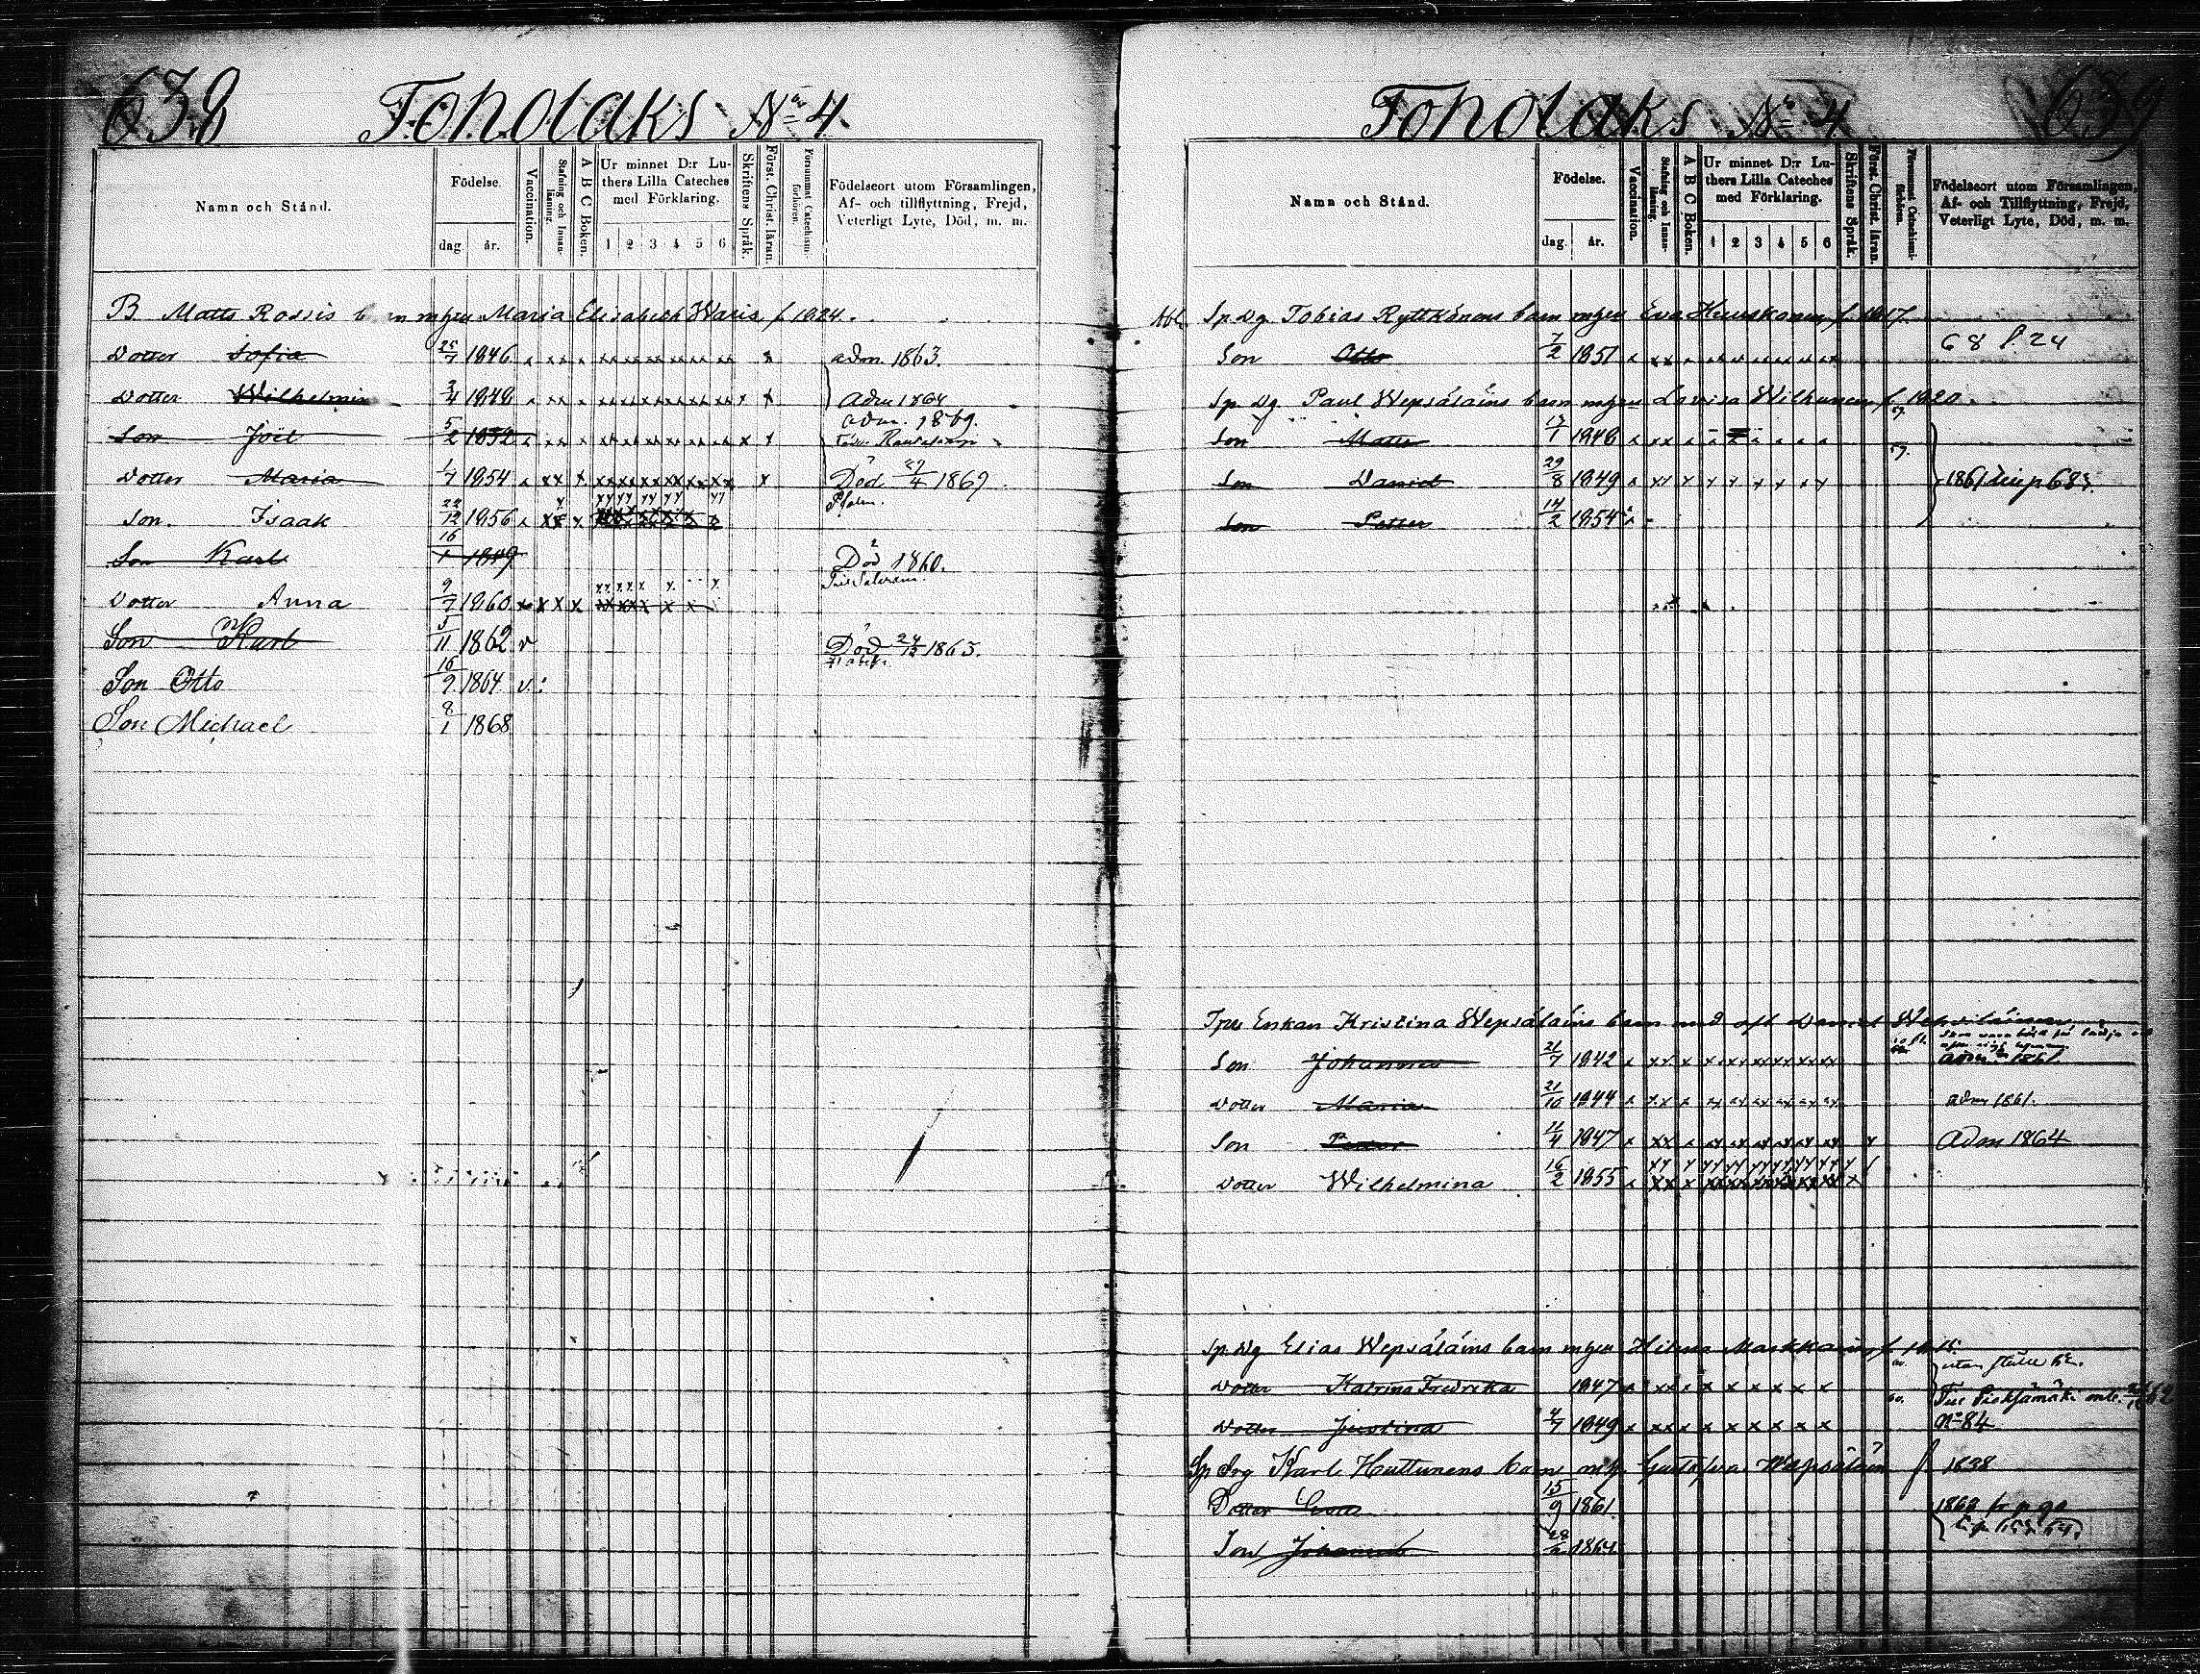 638 Toholaks No 4.
Namn och Stånd.
Födelse.
dag. år.
Vaccination.
Stafning och Innanläsning.
A B C Boken.
Ur minnet D:r Luthers Lilla Cateches med Förklaring.
1 2 3 4 5 6
Skriftens Språk.
Först. Christ. läran.
Försummat Catechismiförhören.
Födelseort utom Församlingen, Af- och tillflyttning, Frejd, Veterligt Lyte, Död, m. m.
B. Matts Rossis barn m hu Maria Elisabeth Waris f 1824.
Dotter Sofia 25/7 1846 adm 1863.
Dotter Wilhelmina 3/4 1848 Adm 1864
Son Joel 5/2 1852 adm. 1869.
Dotter Maria 1/7 1854 Död 27/4 1869
Son. Isaak 22/12 1856
Son Karl 16/1 1849 Död 1860.
Dotter Anna 9/7 1860
Son Karl 5/11 1862 v Död 24/12 1863.
Son Otto 16/9 1864 v.
Son Michael 8/1 1868
Toholaks No 4 639
Namn och Stånd.
Födelse.
dag. år.
Vaccination.
Stafning och Innanläsning.
A B C Boken.
Ur minnet D:r Luthers Lilla Cateches med Förklaring.
1 2 3 4 5 6
Skriftens Språk.
Först. Christ. läran.
Försummat Catechismiförhören.
Födelseort utom Församlingen, Af- och Tillflyttning, Frejd, Veterligt Lyte, Död, m. m.
Sp. Dg. Tobias Ryttkönens barn m hu Eva Huuskonen f. 1817.
Son Otto 7/2 1851 68 f. 24
Sp. Dg. Paul Wepsäläins barn m hu Lovisa Wilhunen f. 1820.
Son Matts 17/1 1846
Son Daniel 29/8 1849
Son Petter 14/2 1854
Enkan Kristina Wepsäläins barn med afl Daniel
Son Johannes 21/7 1842 adm 1861.
Dotter Maria 21/10 1844 adm 1861.
Son Petter 11/4 1847 Adm 1864
Dotter Wilhelmina 16/2 1855
Sp. Dg Elias Wepsäläins barn m hu Helena Markkain f.
Dotter Katrina Fredrika 1847
Dotter Justina 4/7 1849 No 84
Sp Dg Karl Huttunens barn m h. Gustafva Wepsäläin f 1838
Dotter Eva 15/9 1861.
Son Johannes 1864